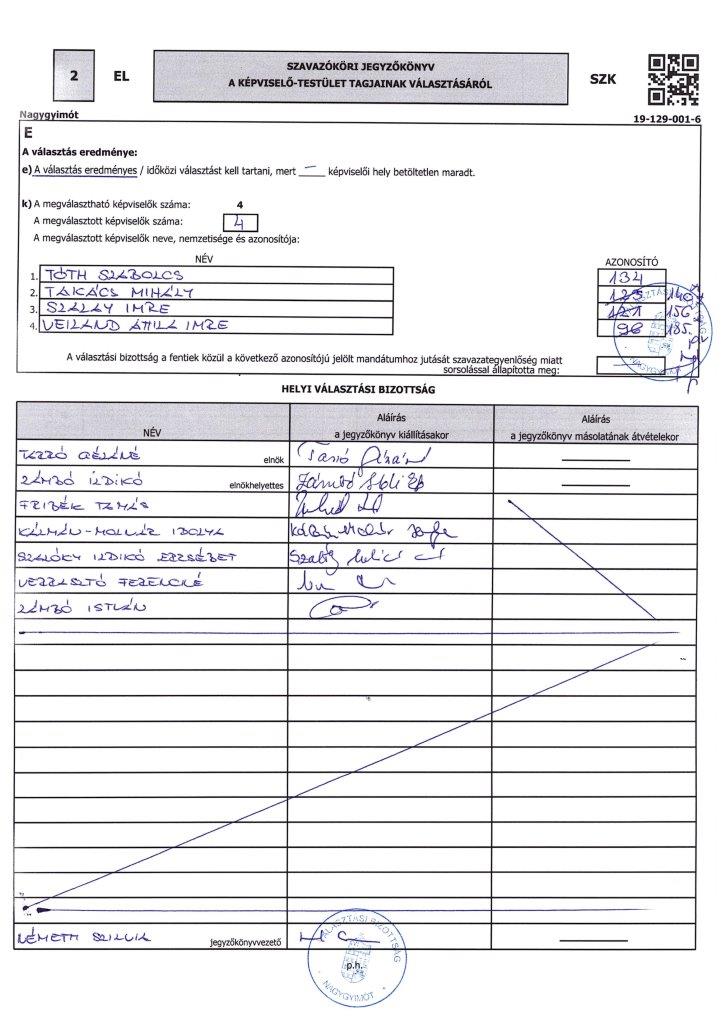 2
EL
SZAVAZÓKÖRI JEGYZŐKÖNYV
A KÉPVISELŐ-TESTÜLET TAGJAINAK VÁLASZTÁSÁRÓL
SZK
Nagygyimót
19-129-001-6
E
A választás eredménye:
e) A választás eredményes / időközi választást kell tartani, mert — képviselői hely betöltetlen maradt.
k) A megválasztható képviselők száma: 4
A megválasztott képviselők száma: 4
A megválasztott képviselők neve, nemzetisége és azonosítója:
NÉV AZONOSÍTÓ
1. TÓTH SZABOLCS 134
2. TAKÁCS MIHÁLY 123 140
3. SZALAY IMRE 121 156
4. VEILAND ATTILA IMRE 96 185
A választási bizottság a fentiek közül a következő azonosítójú jelölt mandátumhoz jutását szavazategyenlőség miatt
sorsolással állapította meg:
HELYI VÁLASZTÁSI BIZOTTSÁG
NÉV
Aláírás
a jegyzőkönyv kiállításakor
Aláírás
a jegyzőkönyv másolatának átvételekor
GÉZÁNÉ elnök
ZÁMBÓ ILDIKÓ elnökhelyettes
TAMÁS
KÁLMÁN-MOLNÁR IBOLYA
SZALÓKY ILDIKÓ ERZSÉBET
VERRASZTÓ FERENCNÉ
ZÁMBÓ ISTVÁN
NÉMETH SZILVIA jegyzőkönyvvezető
VÁLASZTÁSI BIZOTTSÁG
p.h.
NAGYGYIMÓT